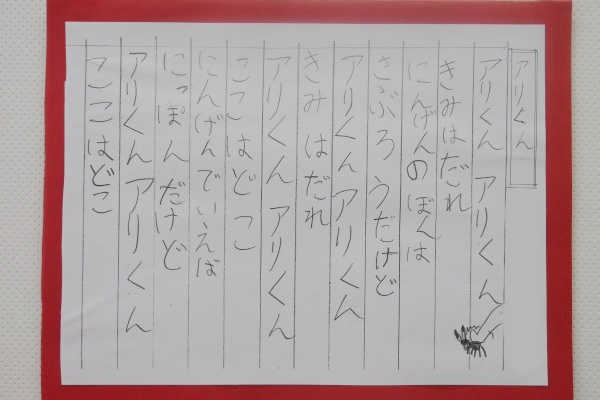 アリくん
アリくん アリくん
きみはだれ
にんげんのぼくは
さぶろうだけど
アリくん アリくん
きみはだれ
アリくん アリくん
ここはどこ
にんげんでいえば
にっぽんだけど
アリくん アリくん
ここはどこ